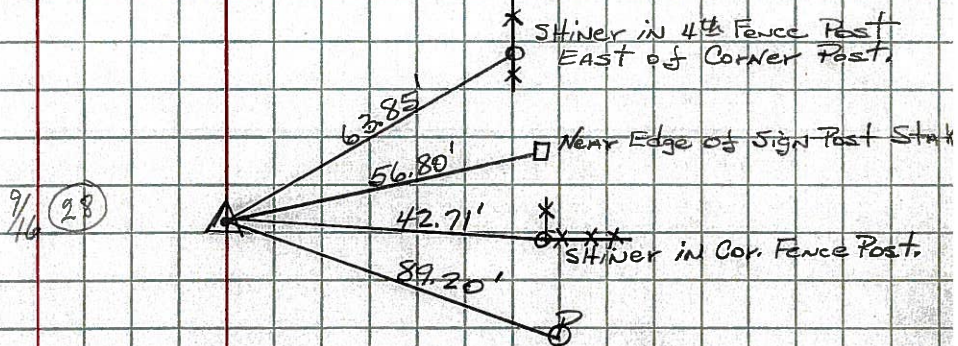 SHiner in 4th Fence Post
EAST of Corner Post.
63.85'
Near Edge of Sign Post
56.80'
9/16 28
42.71'
SHiner in Cor. Fence Post.
89.20'
P